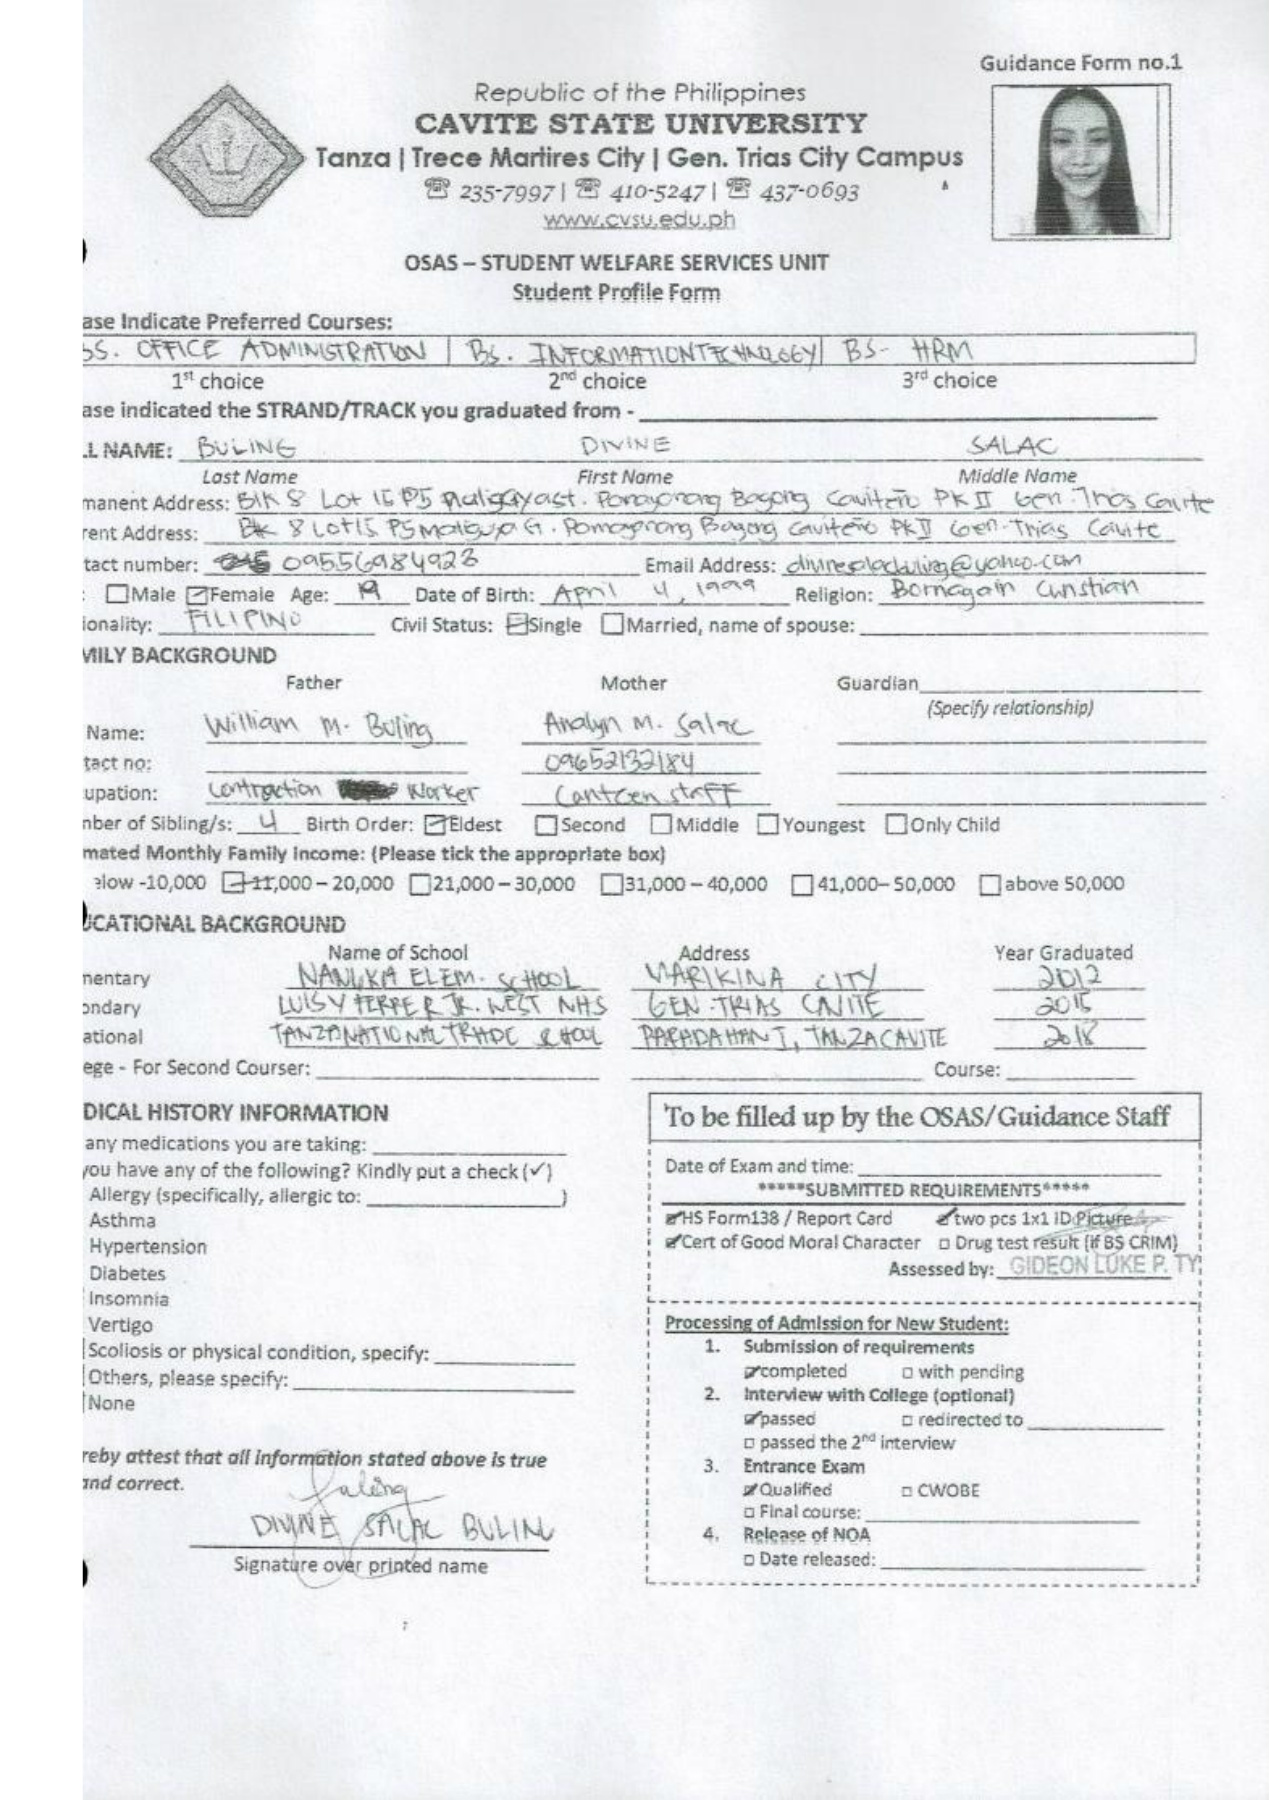 Guidance Form no.1
Republic of the Philippines
CAVITE STATE UNIVERSITY
Tanza | Trece Martires City | Gen. Trias City Campus
☎ 235-7997 | ☎ 410-5247 | ☎ 437-0693
www.cvsu.edu.ph
OSAS – STUDENT WELFARE SERVICES UNIT
Student Profile Form
ase Indicate Preferred Courses:
BS. OFFICE ADMINISTRATION | BS. INFORMATIONTECHNOLOGY | BS- HRM
1st choice 2nd choice 3rd choice
ase indicated the STRAND/TRACK you graduated from -
L NAME: BULING DIVINE SALAC
Last Name First Name Middle Name
manent Address: Blk 8 Lot 15 P5 Bagong Caviteño PK II Gen. Trias Cavite
rent Address: Blk 8 Lot15 P5 Bagong Caviteño PK II Gen. Trias Cavite
tact number: 09556984923 Email Address:
: Male Female Age: 19 Date of Birth: April 4, 1999 Religion: Bornagain Cristian
ionality: FILIPINO Civil Status: Single Married, name of spouse:
MILY BACKGROUND
Father Mother Guardian
(Specify relationship)
Name: William M. Buling Analyn M. Salac
tact no: 09652132184
upation: Contraction Worker Canteen staff
nber of Sibling/s: 4 Birth Order: Eldest Second Middle Youngest Only Child
mated Monthly Family Income: (Please tick the appropriate box)
elow -10,000 11,000 – 20,000 21,000 – 30,000 31,000 – 40,000 41,000– 50,000 above 50,000
UCATIONAL BACKGROUND
Name of School Address Year Graduated
mentary NANGKA ELEM. SCHOOL MARIKINA CITY 2012
ondary LUIS Y FERRER JR. WEST NHS GEN. TRIAS CAVITE 2015
ational TANZA NATIONAL TRADE SCHOOL PARADAHAN I, TANZA CAVITE 2018
ege - For Second Courser: Course:
DICAL HISTORY INFORMATION
any medications you are taking:
you have any of the following? Kindly put a check (✓)
Allergy (specifically, allergic to: )
Asthma
Hypertension
Diabetes
Insomnia
Vertigo
Scoliosis or physical condition, specify:
Others, please specify:
None
reby attest that all information stated above is true
and correct.
DIVINE SALAC BULING
Signature over printed name
To be filled up by the OSAS/Guidance Staff
Date of Exam and time:
*****SUBMITTED REQUIREMENTS*****
HS Form138 / Report Card two pcs 1x1 ID Picture
Cert of Good Moral Character Drug test result (if BS CRIM)
Assessed by: GIDEON LUKE P. TY
Processing of Admission for New Student:
1. Submission of requirements
completed with pending
2. Interview with College (optional)
passed redirected to
passed the 2nd interview
3. Entrance Exam
Qualified CWOBE
Final course:
4. Release of NOA
Date released: